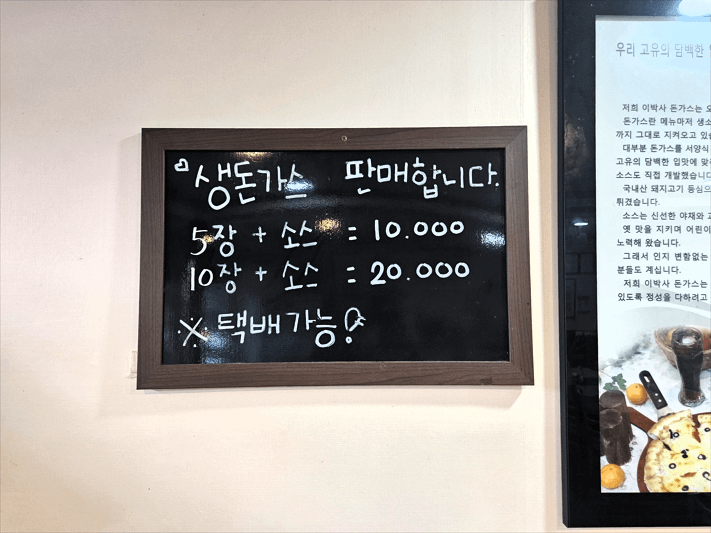 생돈가스 판매합니다.
5장 + 소스 = 10.000
10장 + 소스 = 20.000
※ 택배가능!
우리 고유의 담백한
저희 이박사 돈가스는
돈가스란 메뉴마저 생소
까지 그대로 지켜오고
대부분 돈가스를 서양식
고유의 담백한 입맛에
소스도 직접 개발했습니다
국내산 돼지고기 등심으
튀겼습니다.
소스는 신선한 야채와
옛 맛을 지키며 어린이
노력해 왔습니다.
그래서 인지 변함없는
분들도 계십니다.
저희 이박사 돈가스는
있도록 정성을 다하려고